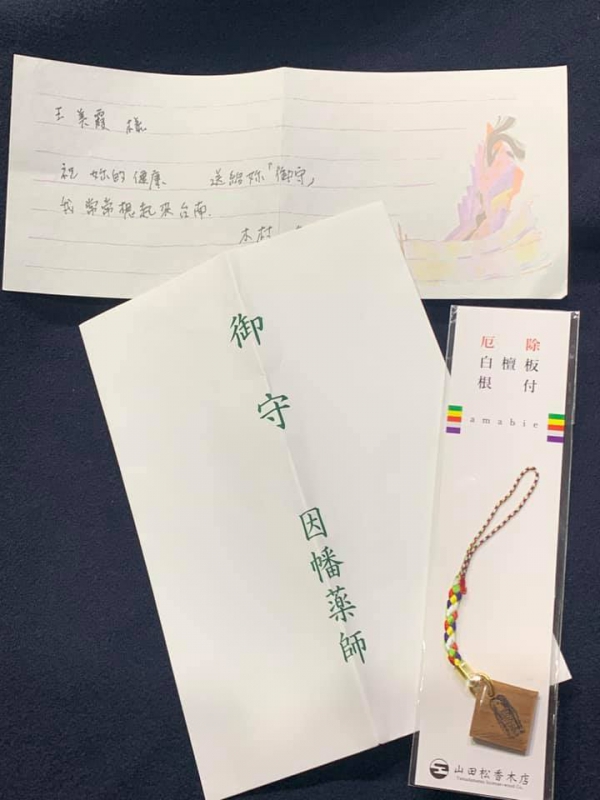 王美霞 様
祝 妳的健康 送給妳「御守」
我常常想起來台南.
木村
御守
因幡薬師
厄除
白檀板
根付
amabie
山田松香木店